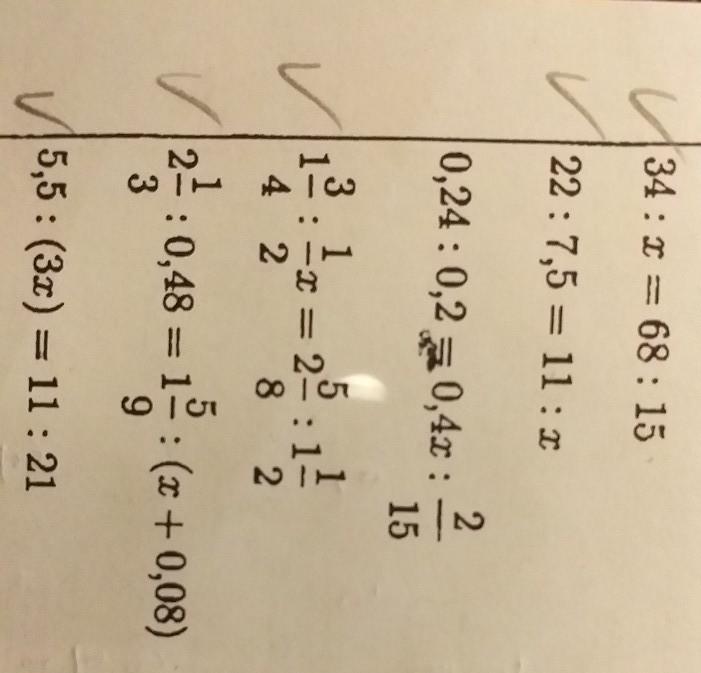 34 : x = 68 : 15
22 : 7,5 = 11 : x
0,24 : 0,2 = 0,4x : 2/15
1 3/4 : 1/2 x = 2 5/8 : 1 1/2
2 1/3 : 0,48 = 1 5/9 : (x + 0,08)
5,5 : (3x) = 11 : 21